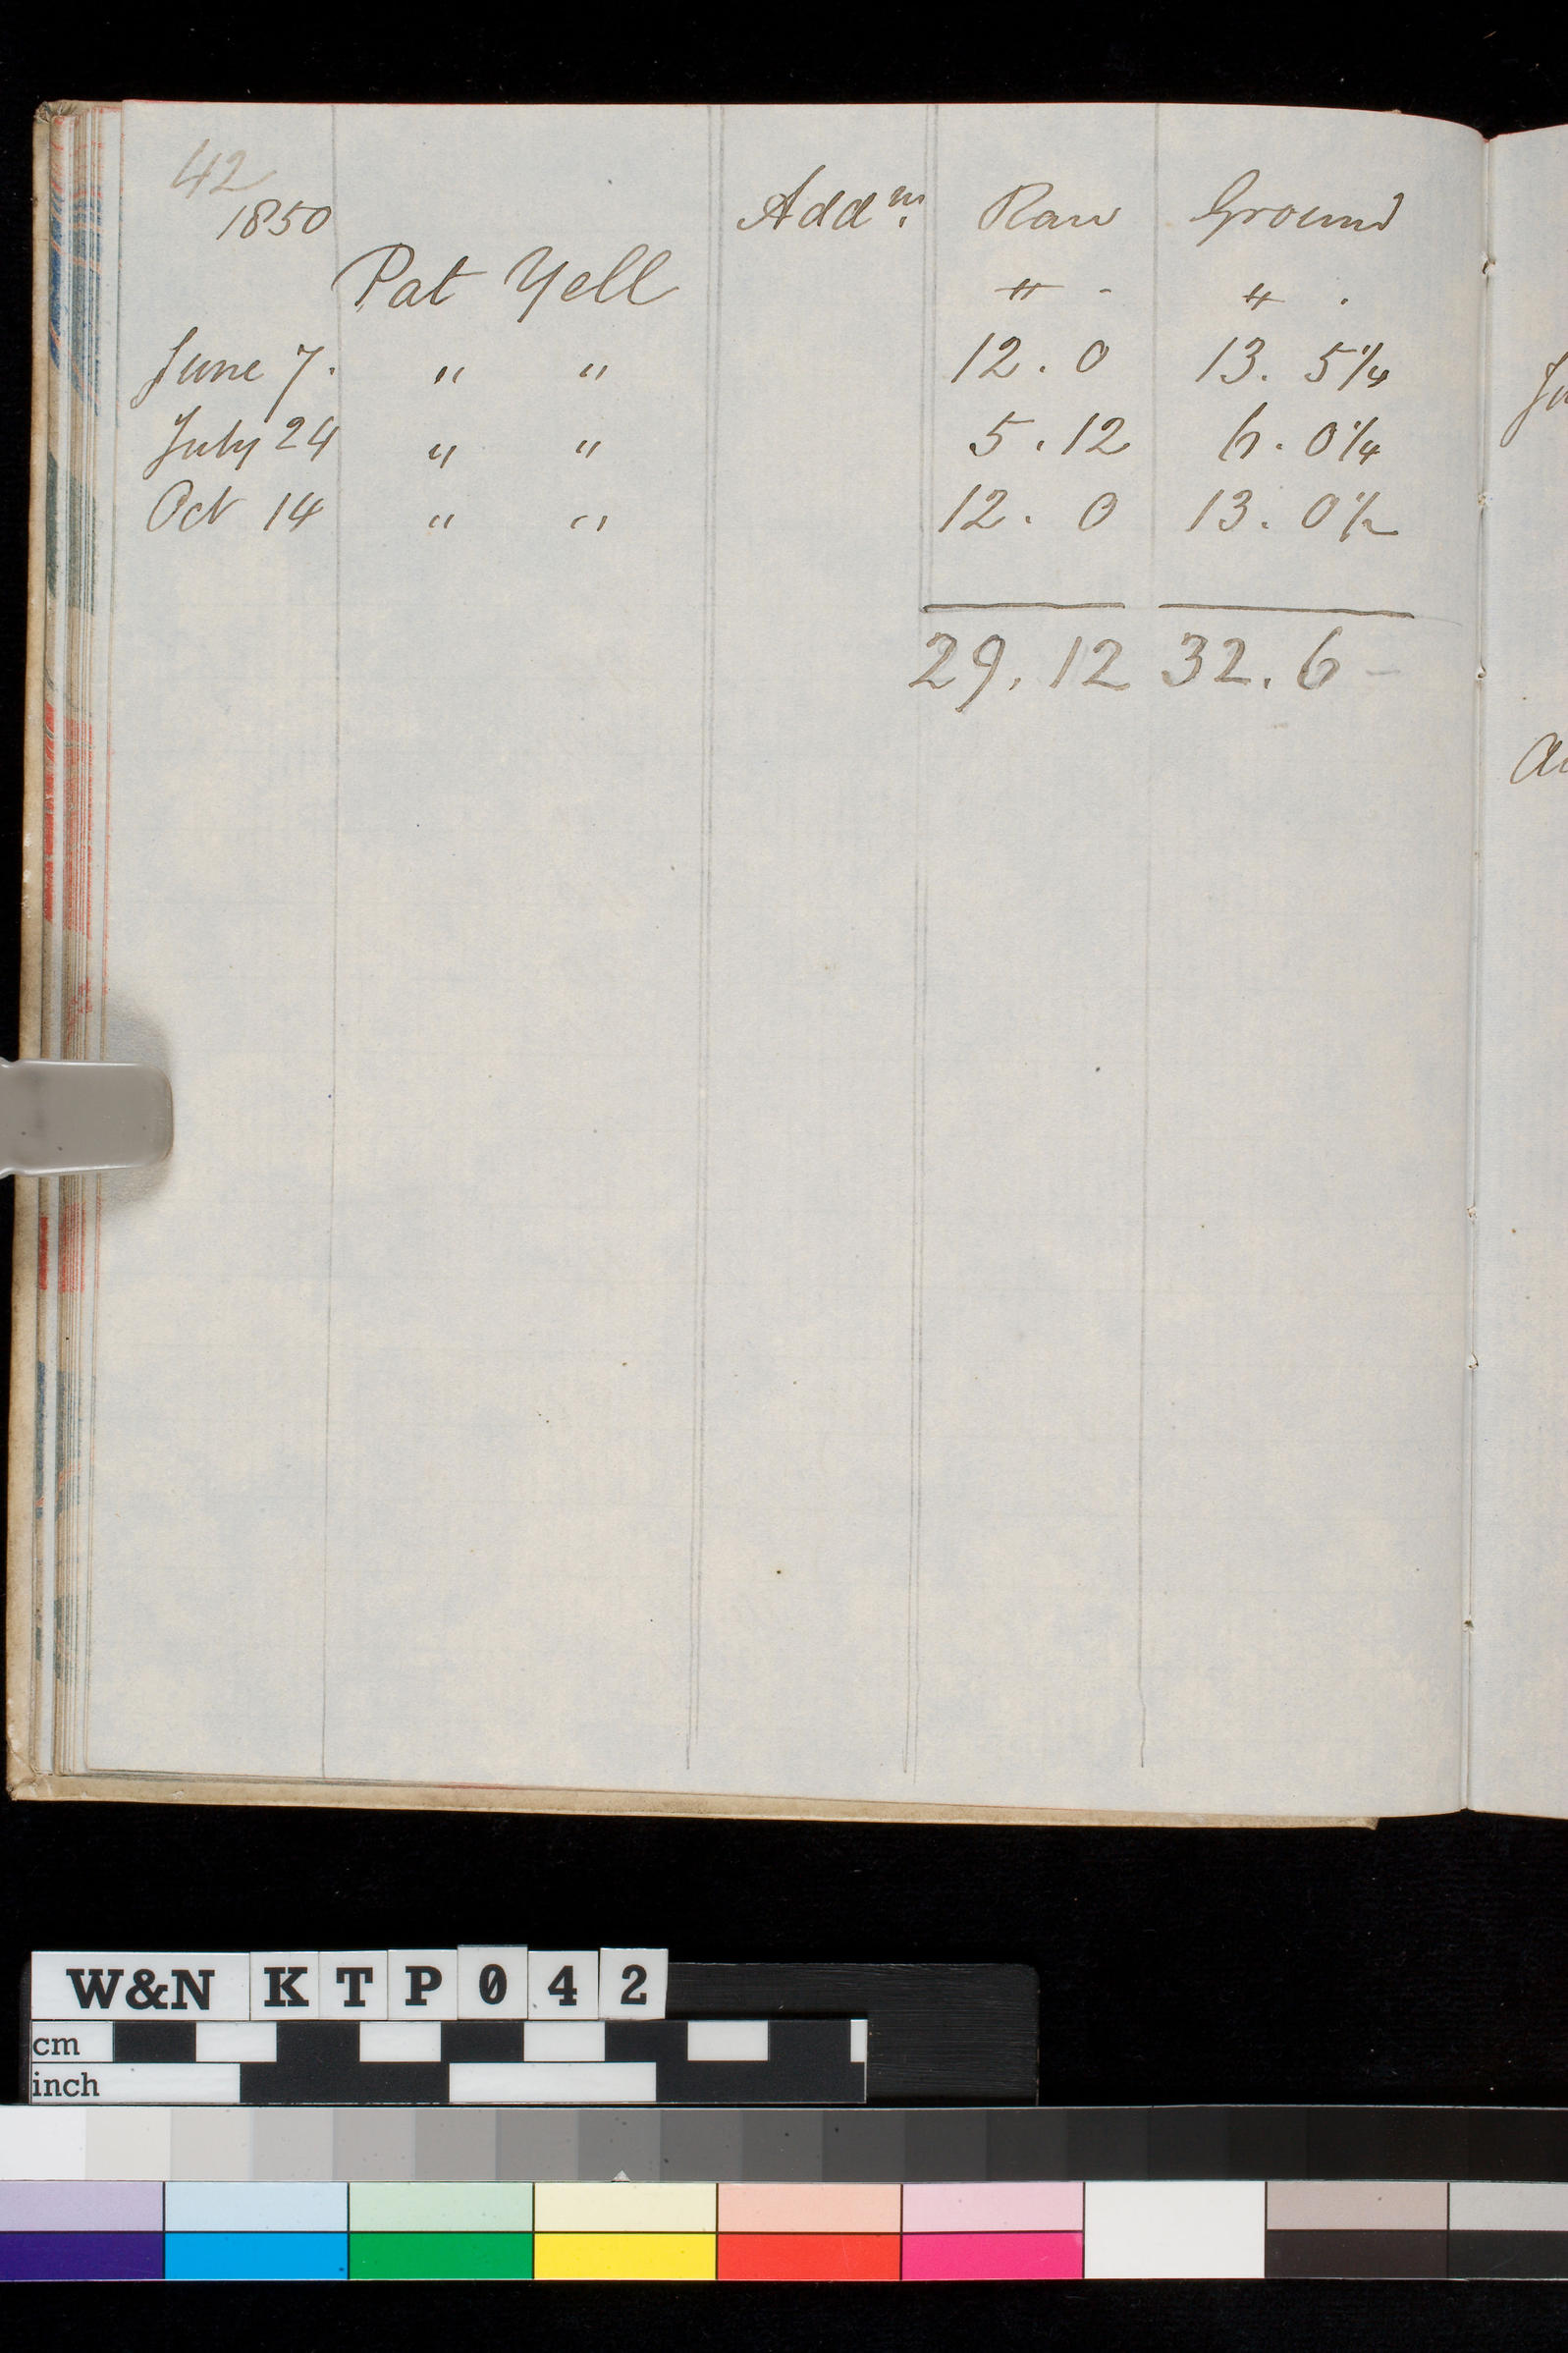 42
1850 Addn. Raw Ground
Pat Yell
June 7. " " 12 . 0 13 . 5 1/4
July 24 " " 5 . 12 6 . 0 1/4
Oct 14 " " 12 . 0 13 . 0 1/2
29 . 12 32 . 6 -
W&N KTP042
cm
inch